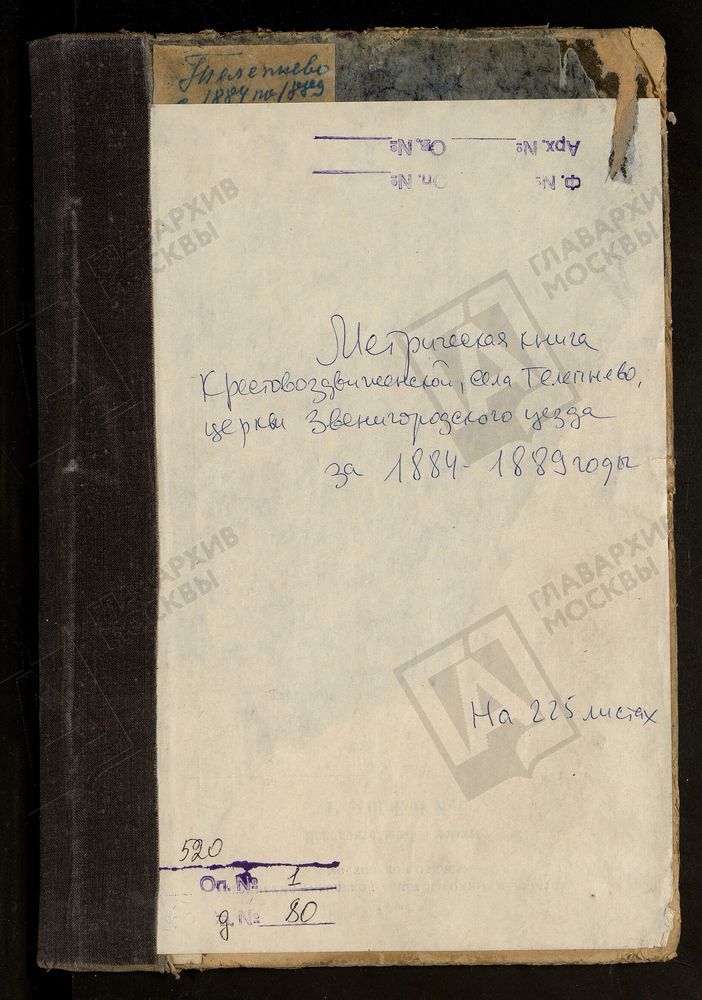 Телепнево
с 1884 по 1889
Арх. № Св. №
Ф. № Оп. №
Метрическая книга
Крестовоздвиженской, села Телепнево,
церкви Звенигородского уезда
за 1884-1889 годы
На 225 листах
520
Оп. № 1
д. № 80
ГЛАВАРХИВ
МОСКВЫ
ГЛАВАРХИВ
МОСКВЫ
ГЛАВАРХИВ
МОСКВЫ
ГЛАВАРХИВ
МОСКВЫ